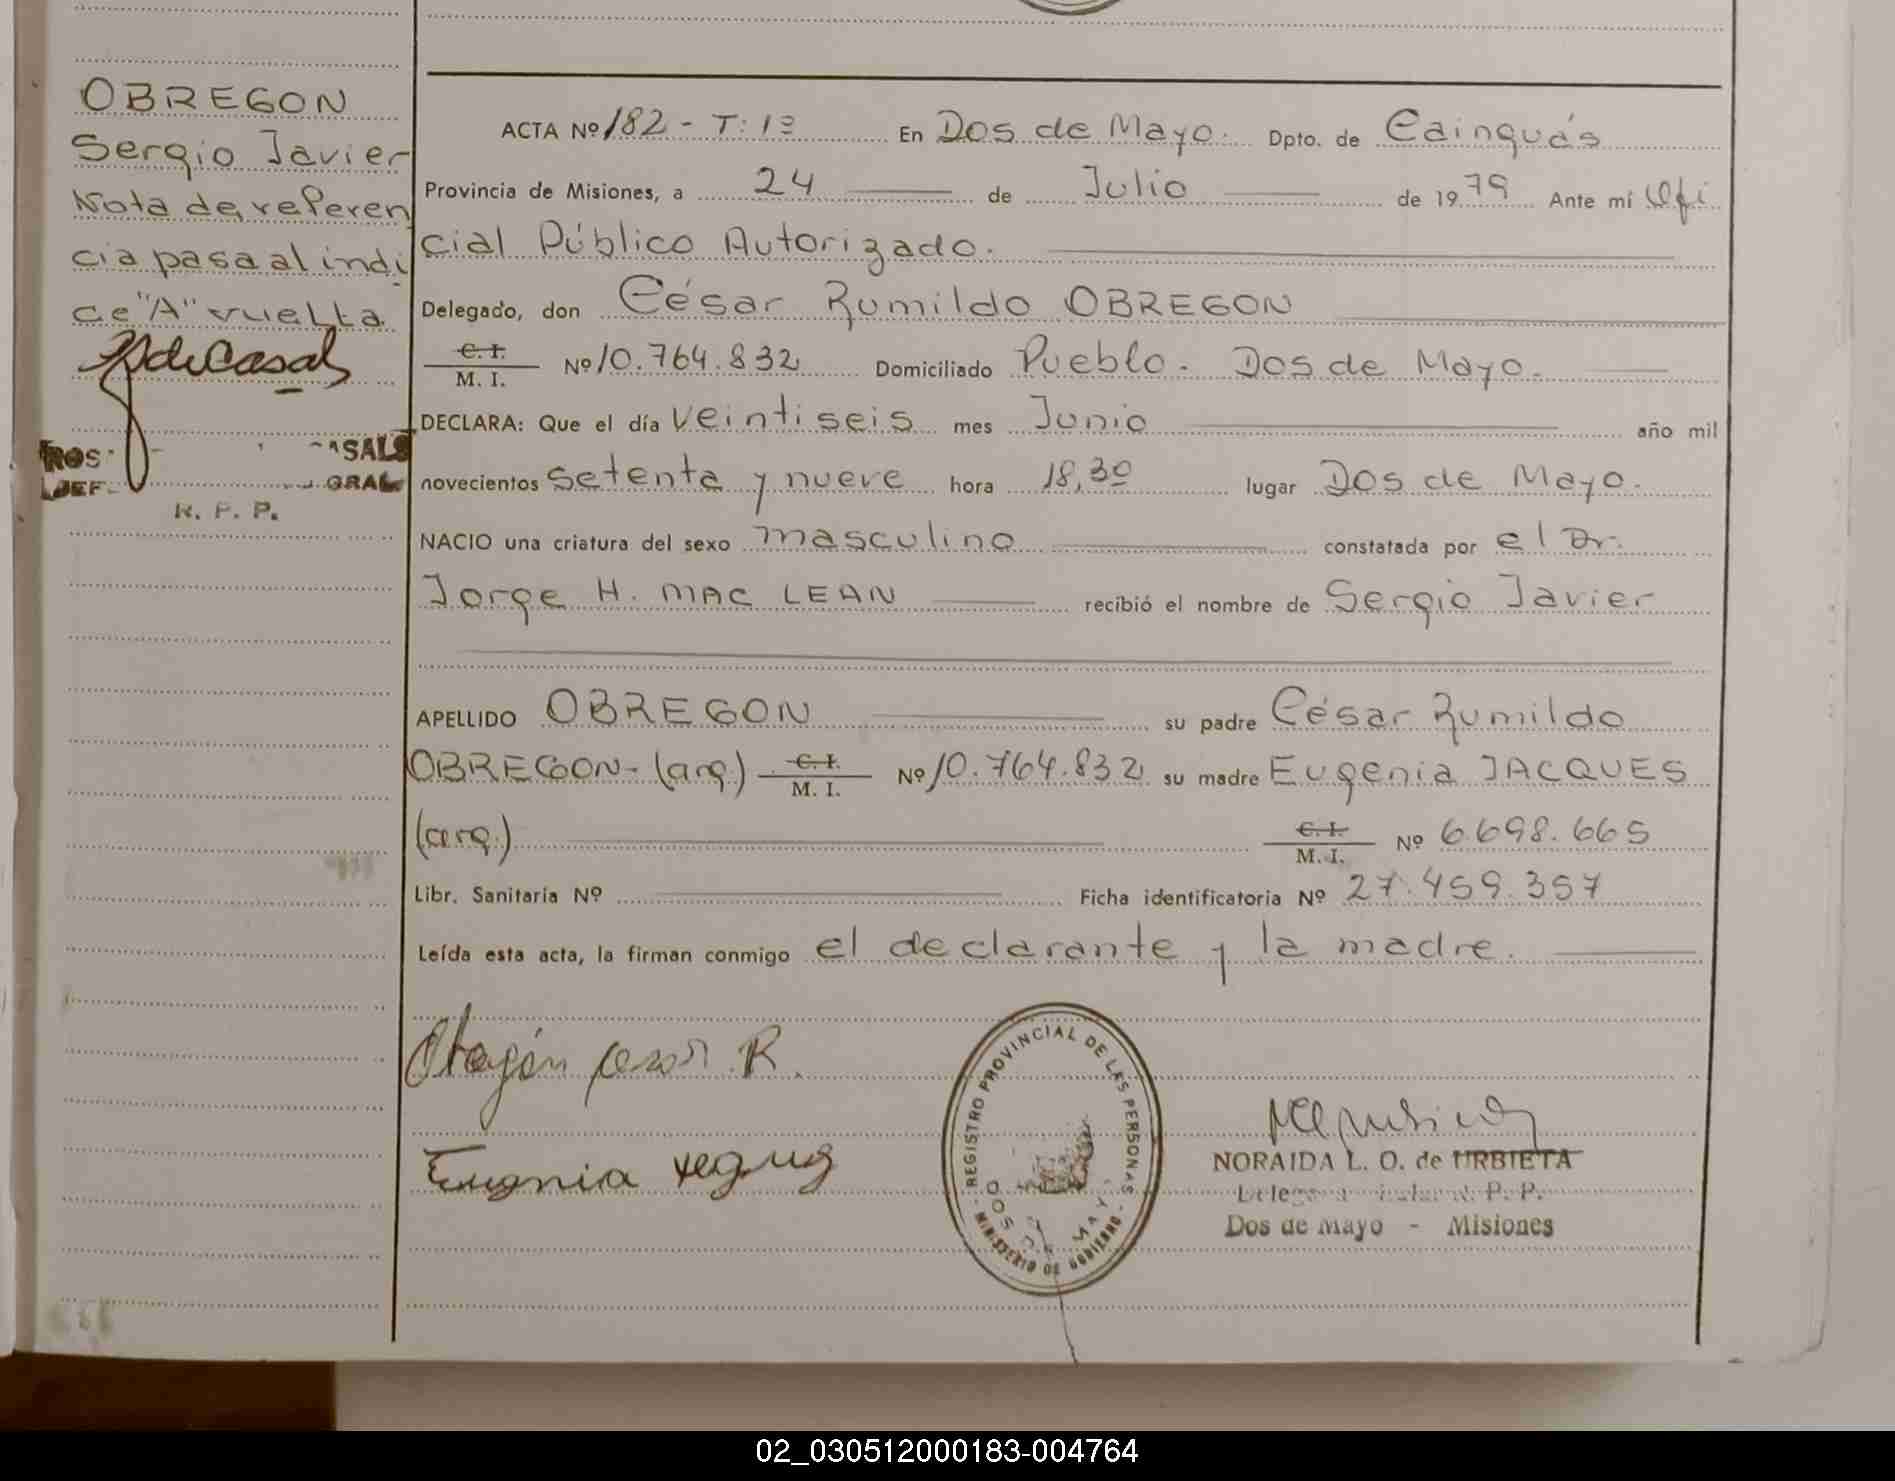 OBREGON
Sergio Javier
Nota de referen
cia pasa al indi
ce "A" vuelta
R. P. P.
ACTA Nº 182 - T: 1º En Dos de Mayo. Dpto. de Cainguás
Provincia de Misiones, a 24 de Julio de 1979 Ante mí Ofi
cial Público Autorizado.
Delegado, don César Rumildo OBREGON
C. I. M. I. Nº 10.764.832 Domiciliado Pueblo - Dos de Mayo.
DECLARA: Que el día veintiseis mes Junio año mil
novecientos setenta y nueve hora 18,30 lugar Dos de Mayo.
NACIO una criatura del sexo masculino constatada por el Dr.
Jorge H. MAC LEAN recibió el nombre de Sergio Javier
APELLIDO OBREGON su padre César Rumildo
OBREGON - (arg.) C. I. M. I. Nº 10.764.832 su madre Eugenia JACQUES
(arg.) C. I. M. I. Nº 6.698.665
Libr. Sanitaria Nº Ficha identificatoria Nº 27.459.357
Leída esta acta, la firman conmigo el declarante y la madre.
R.
Eugenia
REGISTRO PROVINCIAL DE LAS PERSONAS
MINISTERIO DE GOBIERNO
NORAIDA L. O. de URBIETA
Dos de Mayo - Misiones
02_030512000183-004764